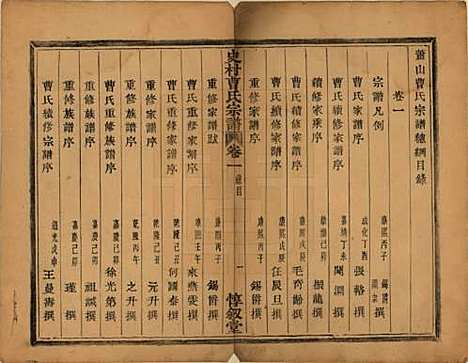 蕭山曹氏宗譜總綱目錄
卷一
宗譜凡例 康熙丙子 錫爵撰
曹氏家譜序 成化丁亥 張輅撰
續修家乘序 嘉靖丁未 閔淵撰
續修家譜序 康熙戊辰 振龍撰
曹氏家譜序 康熙戊辰 毛奇齡撰
重修家譜序 任辰旦撰
重修家譜跋 康熙丙子 錫爵撰
史村曹氏宗譜 卷一 總目 一 惇敘堂
重修家譜序 康熙丙子 錫爵撰
曹氏重修家譜序 康熙壬午 來燕雯撰
曹氏重修家譜序 乾隆己丑 何國泰撰
重修族譜序 乾隆己丑 元升撰
重修族譜序 乾隆丙午 之升撰
曹氏續修族譜序 嘉慶己卯 徐光第撰
重修族譜序 嘉慶己卯 祖誠撰
重修族譜序 嘉慶己卯 瑾撰
曹氏續修宗譜序 道光戊申 王曼壽撰